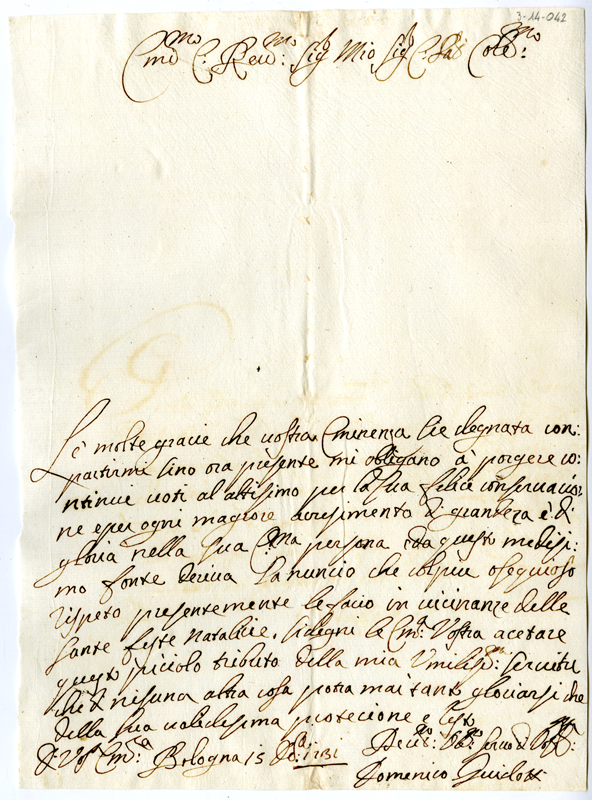 3-14-042
Em.mo e Rev.mo Sig.r Mio Sig.r e Col.mo
Le molte gracie che vostra Eminenza sie degnata con:
partirmi sino ora presente mi obligano à porgere co:
ntinue voti al altisimo per la sua felice conservacio:
ne e per ogni magiore acresimento di grandeza è di
gloria nella sua Em.ma persona e da questo medesi:
mo fonte deriva lanuncio che col piu osequioso
rispeto presentemente le facio in vicinanze delle
sante feste natalicie, si degni le Em.a Vostra acetare
questo picciolo tributo della mia Umilis.ma servitu
che di nisuna altra cosa potra mai tanto gloriarsi che
della sua validisima protecione e resto
D. V. Em.za Bologna 15 1731
Domenico Guidotti